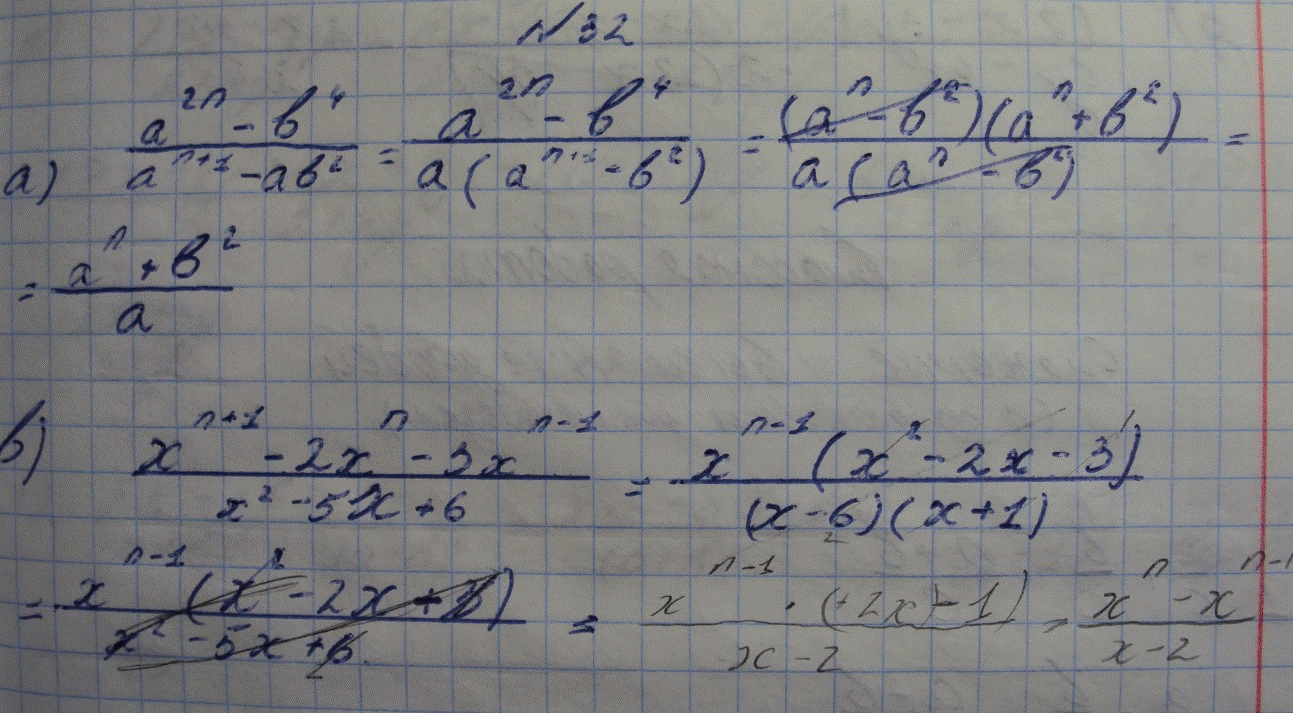 №32
а) (a^{2n} - b^4)/(a^{n+1} - ab^2) = (a^{2n} - b^4)/(a(a^{n+1} - b^2)) = ((a^n - b^2)(a^n + b^2))/(a(a^n - b^2)) =
= (x^n + b^2)/a
в) (x^{n+1} - 2x^n - 3x^{n-1})/(x^2 - 5x + 6) = (x^{n-1}(x^2 - 2x - 3))/((x-6)(x+1))
= (x^{n-1}(x^2 - 2x + 3))/(x^2 - 5x + 6) = (x^{n-1} · (+2x) - 1)/(x - 2) = (x^n - x^{n-1})/(x - 2)